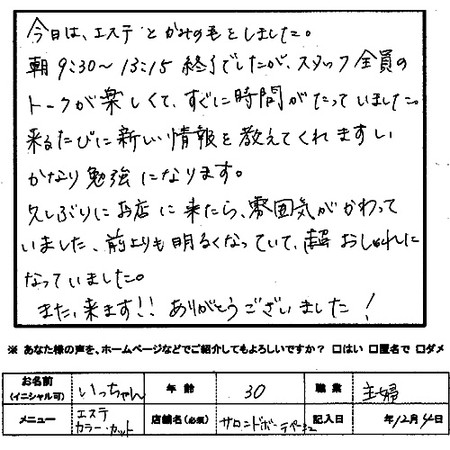 今日は、エステとかみの毛をしました。
朝9:30～13:15 終了でしたが、スタッフ全員の
トークが楽しくて、すぐに時間がたっていました。
来るたびに新しい情報を教えてくれますし
かなり勉強になります。
久しぶりにお店に来たら、雰囲気がかわって
いました、前よりも明るくなっていて、超おしゃれに
なっていました。
また、来ます!! ありがとうございました!
※ あなた様の声を、ホームページなどでご紹介してもよろしいですか？ □はい □匿名で □ダメ
お名前（イニシャル可） いっちゃん 年齢 30 職業 主婦
メニュー エステ カラー・カット 店舗名（必須） サロンドボーテ 記入日 年12月4日